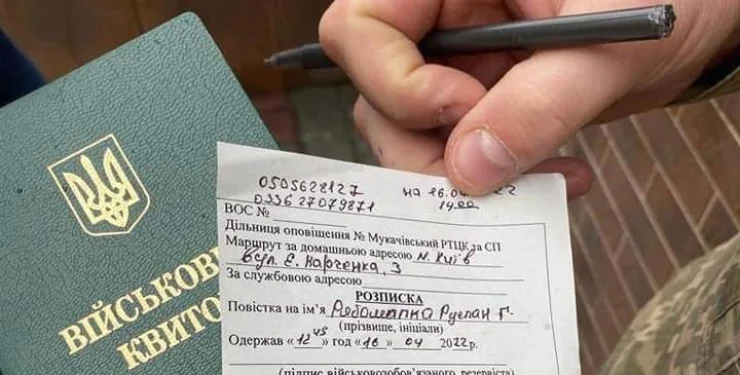 ВІЙСЬКОВ
КВИТО
0505628127 на 16.0 22
0336 27079871 14.00
ВОС №
Дільниця оповіщення № Мукачівський РТЦК та СП
Маршрут за домашньою адресою м. Київ
вул. Є. Харченка, 3
За службовою адресою
РОЗПИСКА
Повістка на ім'я Рябошапка Руслан Г.
(прізвище, ініціали)
Одержав «12 45» год «16» 04 2022р.
(підпис військовозобов'язаного, резервіста)